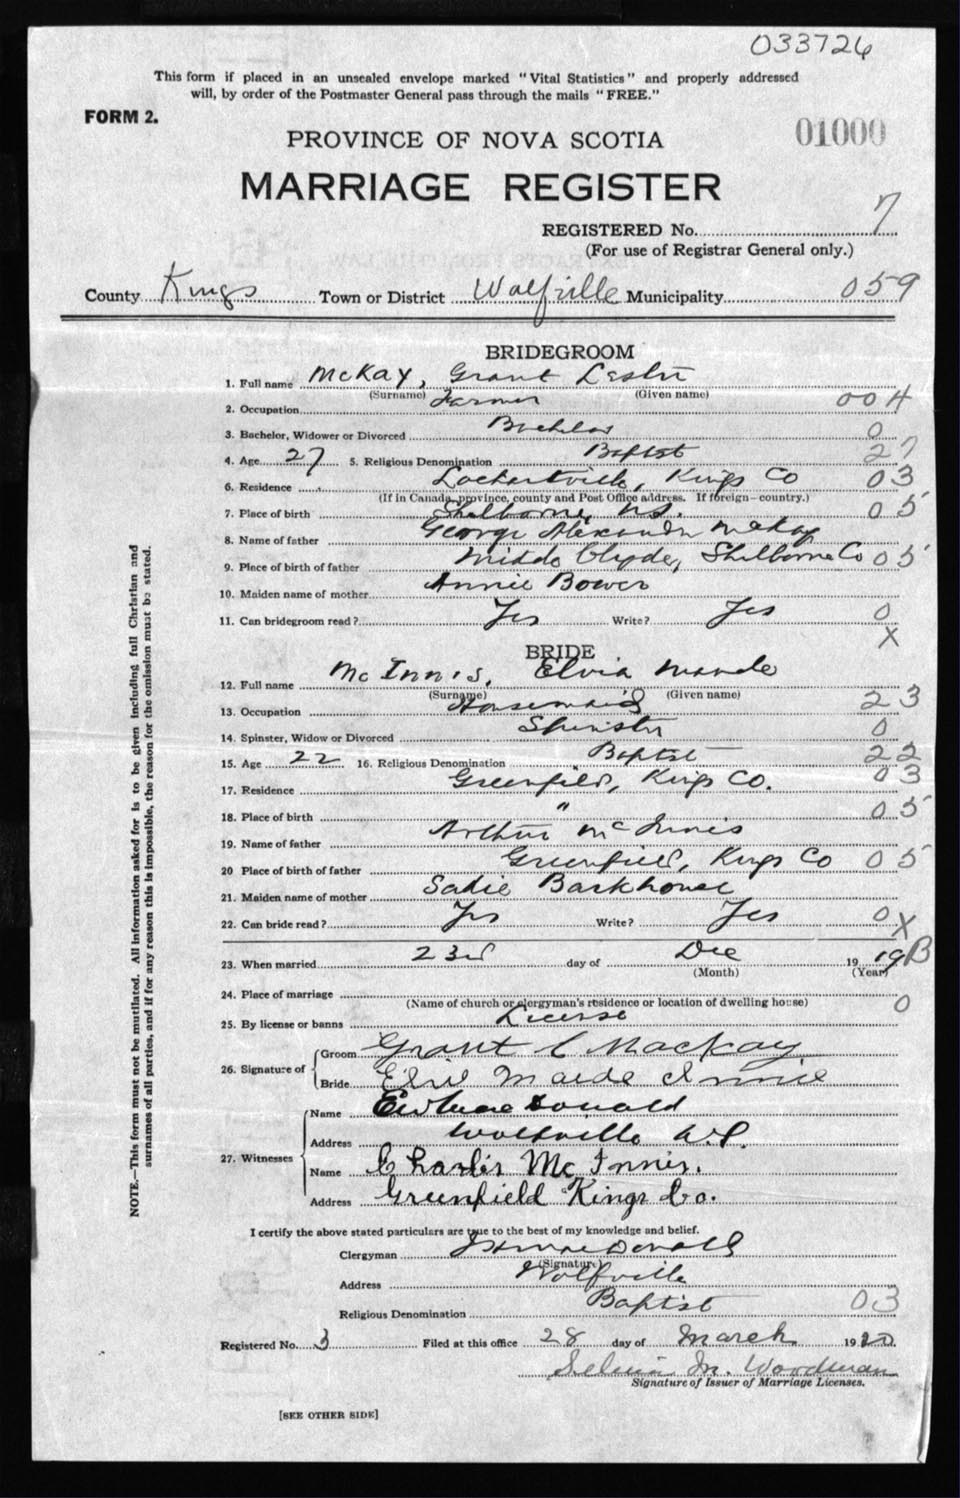 033726
This form if placed in an unsealed envelope marked "Vital Statistics" and properly addressed
will, by order of the Postmaster General pass through the mails "FREE."
FORM 2.
PROVINCE OF NOVA SCOTIA
01000
MARRIAGE REGISTER
REGISTERED No. 7
(For use of Registrar General only.)
County Kings Town or District Wolfville Municipality 059
BRIDEGROOM
1. Full name McKay, Grant Leslie
(Surname) (Given name)
2. Occupation Farmer 004
3. Bachelor, Widower or Divorced Bachelor 0
4. Age 27 5. Religious Denomination Baptist 27
6. Residence Lockhartville, Kings Co 03
(If in Canada, province, county and Post Office address. If foreign—country.)
7. Place of birth Shelborne, N.S. 05
8. Name of father George Alexander McKay
9. Place of birth of father Middle Clyde, Shelborne Co 05
10. Maiden name of mother Annie Bower
11. Can bridegroom read? Yes Write? Yes 0
X
BRIDE
12. Full name McInnis, Elvia Maude
(Surname) (Given name)
13. Occupation Housemaid 23
14. Spinster, Widow or Divorced Spinster 0
15. Age 22 16. Religious Denomination Baptist 22
17. Residence Greenfield, Kings Co. 03
18. Place of birth " 05
19. Name of father Arthur McInnis
20 Place of birth of father Greenfield, Kings Co 05
21. Maiden name of mother Sadie Barkhouse
22. Can bride read? Yes Write? Yes 0 X
23. When married 23rd day of Dec 1919 B
(Month) (Year)
24. Place of marriage
(Name of church or clergyman's residence or location of dwelling house) 0
25. By license or banns License
26. Signature of Groom Grant L MacKay
Bride Maude Innis
27. Witnesses Name
Address Wolfville N.S.
Name Charles McInnis.
Address Greenfield Kings Co.
I certify the above stated particulars are true to the best of my knowledge and belief.
Clergyman MacDonald
(Signature)
Address Wolfville
Religious Denomination Baptist 03
Registered No. 3 Filed at this office 28 day of March 1920
M. Woodman
Signature of Issuer of Marriage Licenses.
[SEE OTHER SIDE]
NOTE.—This form must not be mutilated. All information asked for is to be given including full Christian and
surnames of all parties, and if for any reason this is impossible, the reason for the omission must be stated.